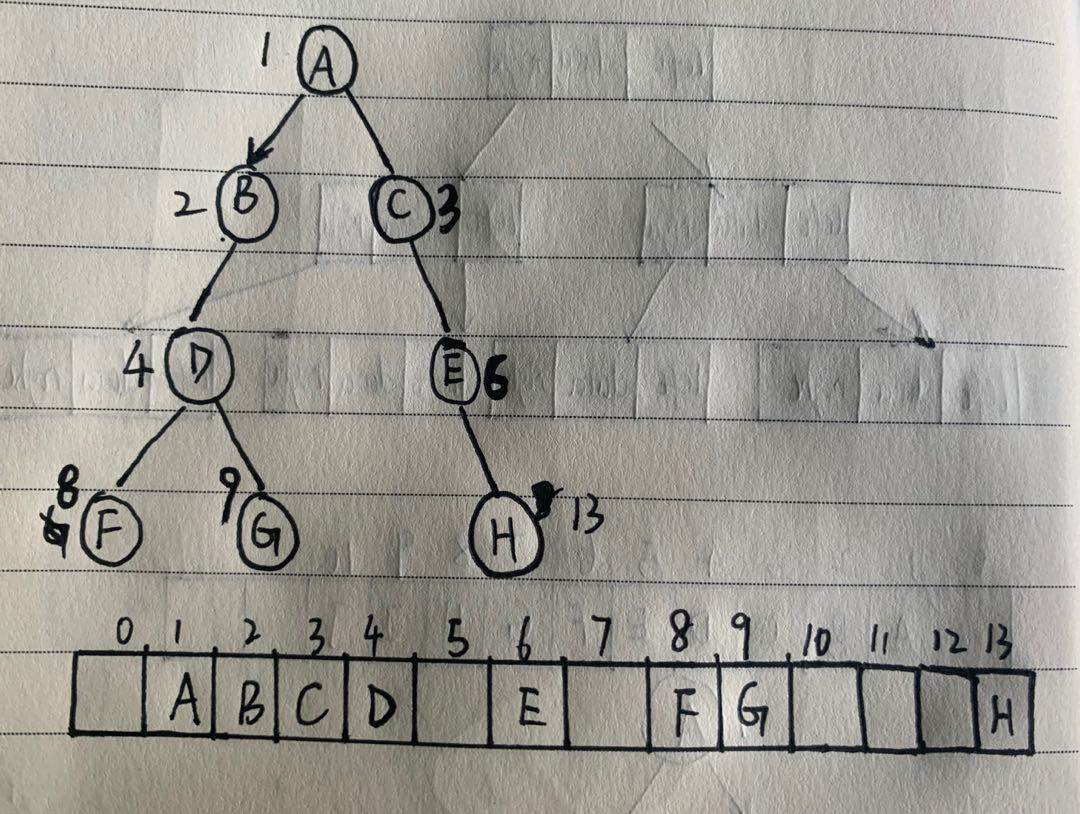 1 A
2 B C 3
4 D E 6
8 9
F G H 13
0 1 2 3 4 5 6 7 8 9 10 11 12 13
A B C D E F G H